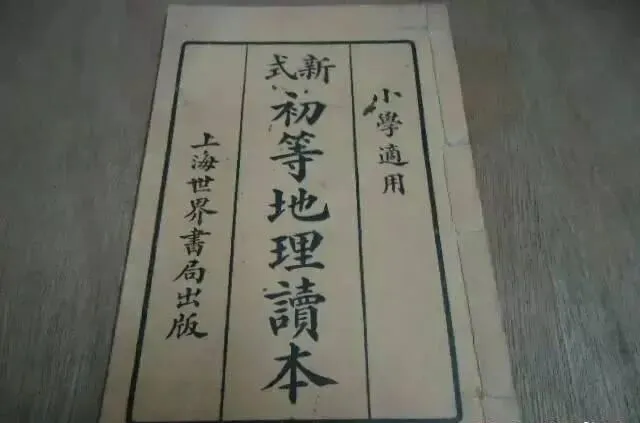 小學適用
新式
初等地理讀本
上海世界書局出版